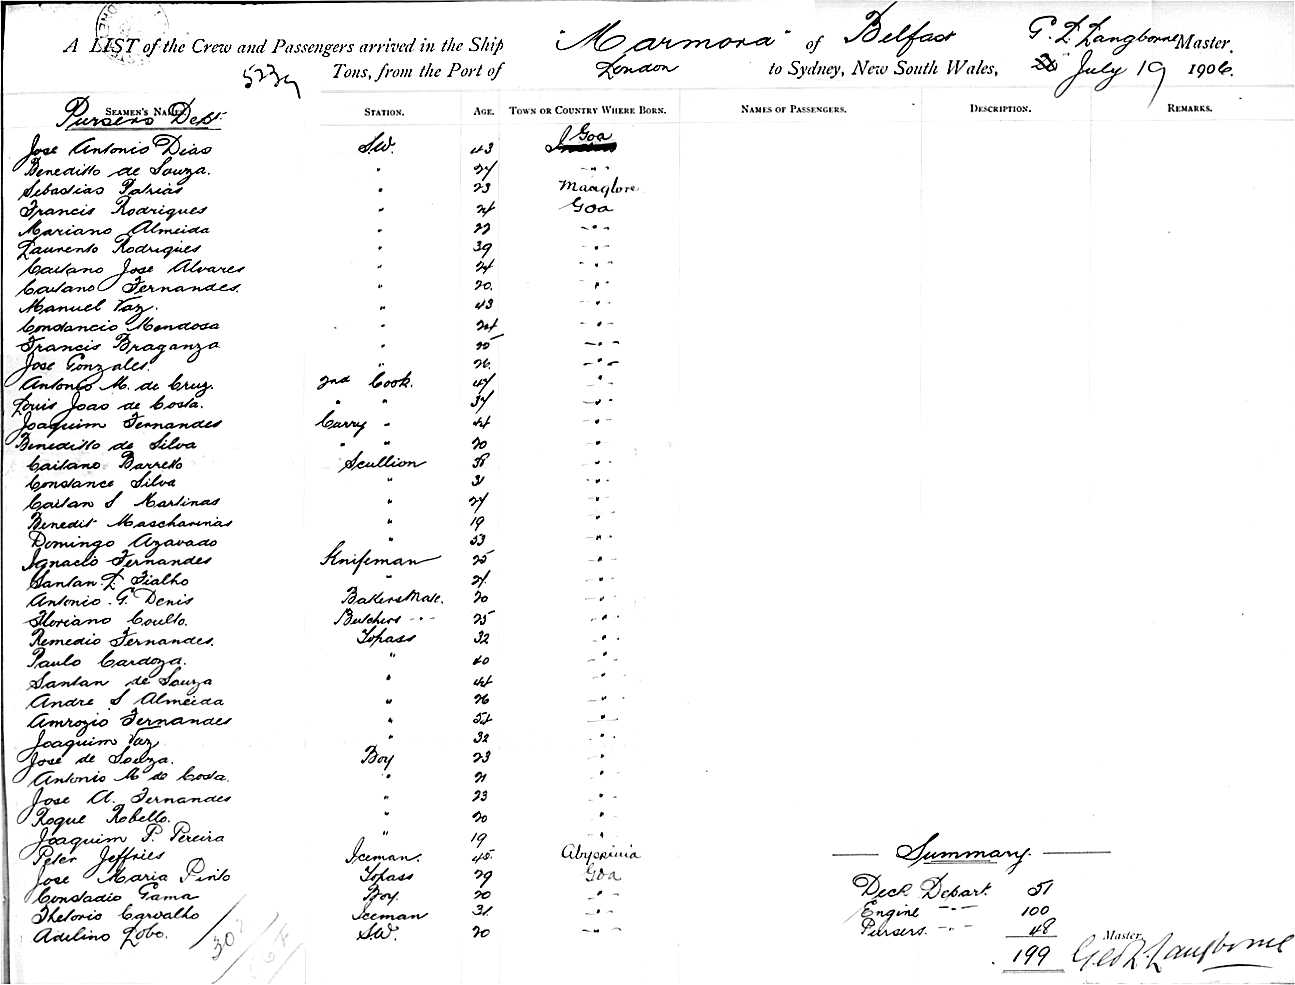 A LIST of the Crew and Passengers arrived in the Ship "Marmora" of Belfast G L Langborne Master.
5239 Tons, from the Port of London to Sydney, New South Wales, July 19 1906.
SEAMEN'S NAMES. STATION. AGE. TOWN OR COUNTRY WHERE BORN. NAMES OF PASSENGERS. DESCRIPTION. REMARKS.
Pursers Dept
Jose Antonio Dias S.W. 43 Goa
Beneditto de Souza. " 27 - " -
Sebastiao Patrias " 23 Manglore
Francis Rodrigues " 24 Goa
Mariano Almeida " 22 - " -
Laurento Rodrigues " 39 - " -
Caitano Jose Alvares " 24 - " -
Caitano Fernandes. " 20. - " -
Manuel Vaz. " 43 - " -
Constancio Mendosa " 24 - " -
Francis Braganza " 25 - " -
Jose Gonzales. " 26. - " -
Antonio M. de Cruz. 2nd Cook. 47 - " -
Louis Joao de Costa. " " 37 - " -
Joaquim Fernandes Curry " 44 - " -
Beneditto de Silva " " 20 - " -
Caitano Barretto Scullion 38 - " -
Constance Silva " 31 - " -
Caitan S Martinas " 27 - " -
Benedit Mascharinas " 19 - " -
Domingo Azavado " 53 - " -
Ignacio Fernandes Knifeman 25 - " -
Santan. L. Fialho " 21. - " -
Antonio. G. Denis Bakers Mate. 20 - " -
Floriano Coutto. Butchers - " - 25 - " -
Remedio Fernandes. Topass 32 - " -
Paulo Cardoza. " 40 - " -
Santan de Souza " 44 - " -
Andre S Almeida " 26 - " -
Amrozio Fernandes " 54 - " -
Joaquim Vaz " 32 - " -
Jose de Souza. Boy 23 - " -
Antonio M de Costa. " 21 - " -
Jose A. Fernandes " 23 - " -
Roque Robello. " 20 - " -
Joaquim P. Pereira " 19 "
Peter Jeffries Iceman. 45. Abyssinia
Summary.
Jose Maria Pinto Topass 29 Goa
Constadio Gama Boy. 20 - " - Deck Depart. 51
Thetorio Carvalho Iceman 31. - " - Engine - " - 100
Adelino Lobo. S.W. 20 - " - Pursers. - " - 48
Master.
199 Geo L Langborne